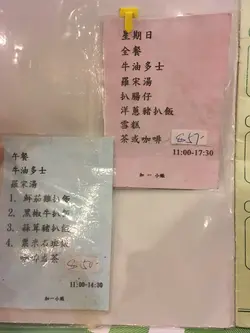 星期日
全餐
牛油多士
羅宋湯
扒腸仔
洋蔥豬扒飯
雪糕
茶或咖啡 $57
11:00-17:30
和一小廚
午餐
牛油多士
羅宋湯
1. 鮮茄雞扒飯
2. 黑椒牛扒飯
3. 蒜茸豬扒飯
4. 粟米石斑飯
咖啡或茶 $50
11:00-14:30
和一小廚